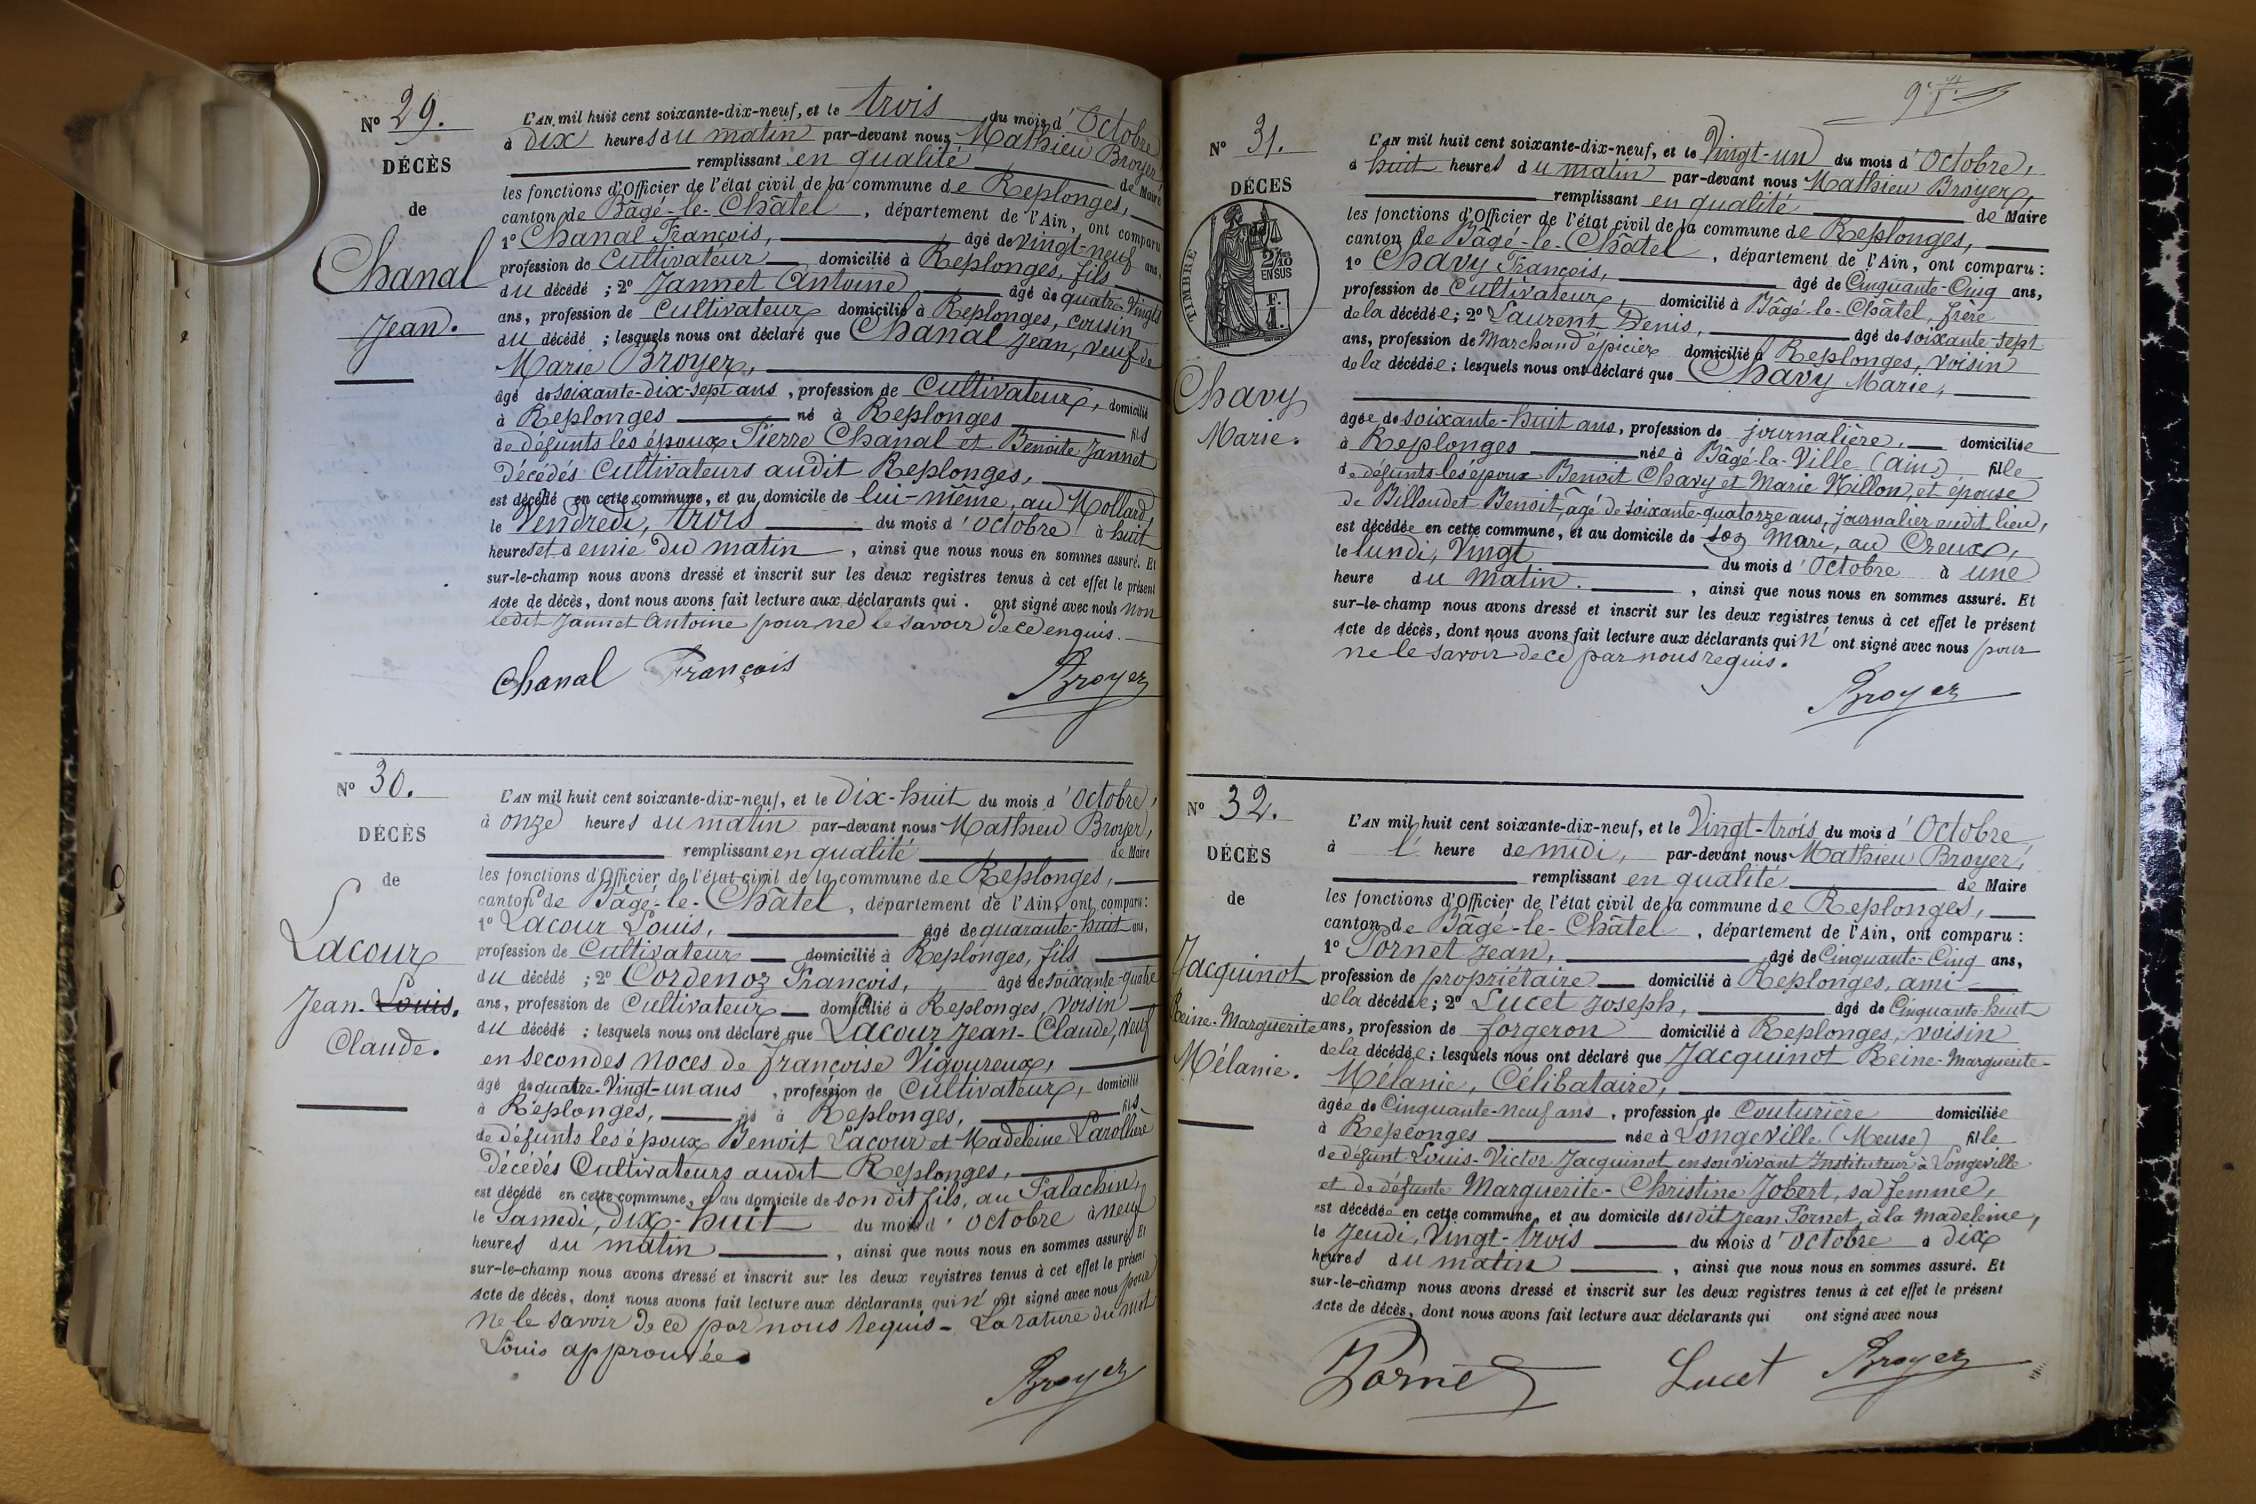 Nº 29.
DÉCÈS
de
Chanal
Jean.
L'AN mil huit cent soixante-dix-neuf, et le trois du mois d'Octobre
à dix heures du matin par-devant nous Mathieu Broyer,
remplissant en qualité de Maire
les fonctions d'Officier de l'état civil de la commune de Replonges,
canton de Bâgé-le-Châtel, département de l'Ain, ont comparu
1º Chanal François, âgé de vingt-neuf ans,
profession de Cultivateur domicilié à Replonges, fils
du décédé ; 2º Jannet Antoine âgé de quatre-Vingts
ans, profession de Cultivateur domicilié à Replonges, cousin
du décédé ; lesquels nous ont déclaré que Chanal Jean, veuf de
Marie Broyer,
âgé de soixante-dix-sept ans, profession de Cultivateur, domicilié
à Replonges né à Replonges fils
de défunts les époux Pierre Chanal et Benoite Jannet
Décédés Cultivateurs audit Replonges,
est décédé en cette commune, et au domicile de lui-même, au Mollard
le Vendredi, trois du mois d'Octobre à huit
heures et demie du matin, ainsi que nous nous en sommes assuré. Et
sur-le-champ nous avons dressé et inscrit sur les deux registres tenus à cet effet le présent
Acte de décès, dont nous avons fait lecture aux déclarants qui . ont signé avec nous non
ledit Jannet Antoine pour ne le savoir de ce enquis.
Chanal François
Broyer
Nº 30.
DÉCÈS
de
Lacour
Jean-Louis.
Claude.
L'AN mil huit cent soixante-dix-neuf, et le Dix-huit du mois d'Octobre,
à onze heures du matin par-devant nous Mathieu Broyer,
remplissant en qualité de Maire
les fonctions d'Officier de l'état civil de la commune de Replonges,
canton de Bâgé-le-Châtel, département de l'Ain, ont comparu :
1º Lacour Louis, âgé de quarante-huit ans,
profession de Cultivateur domicilié à Replonges, fils
du décédé ; 2º Cordenoz François, âgé de soixante-quatre
ans, profession de Cultivateur domicilié à Replonges, voisin
du décédé ; lesquels nous ont déclaré que Lacour Jean-Claude, veuf
en secondes noces de françoise Vigoureux,
âgé de quatre-Vingt-un ans, profession de Cultivateur, domicilié
à Replonges, né à Replonges, fils
de défunts les époux Benoit Lacour et Madeleine Larollière
Décédés Cultivateurs audit Replonges,
est décédé en cette commune, et au domicile de son dit fils, au Palachin,
le Samedi, dix-huit du mois d'Octobre à neuf
heures du matin, ainsi que nous nous en sommes assuré. Et
sur-le-champ nous avons dressé et inscrit sur les deux registres tenus à cet effet le présent
Acte de décès, dont nous avons fait lecture aux déclarants qui n' ont signé avec nous pour
ne le savoir de ce par nous requis - La rature du mot
Louis approuvée.
Broyer
Nº 31.
DÉCES
TIMBRE
2/10 EN SUS
F. 1.
Chavy
Marie.
L'AN mil huit cent soixante-dix-neuf, et le Vingt-un du mois d'Octobre,
à huit heures du matin par-devant nous Mathieu Broyer,
remplissant en qualité de Maire
les fonctions d'Officier de l'état civil de la commune de Replonges,
canton de Bâgé-le-Châtel, département de l'Ain, ont comparu :
1º Chavy François, âgé de Cinquante-Cinq ans,
profession de Cultivateur, domicilié à Bâgé-le-Châtel, frère
de la décédée ; 2º Laurent Denis, âgé de soixante-sept
ans, profession de Marchand épicier domicilié à Replonges, voisin
de la décédée ; lesquels nous ont déclaré que Chavy Marie,
âgée de soixante-huit ans, profession de journalière, domiciliée
à Replonges née à Bâgé-la-Ville (Ain) fille
de défunts les époux Benoit Chavy et Marie Nillon, et épouse
de Billoudet Benoit, âgé de soixante-quatorze ans, journalier audit lieu,
est décédée en cette commune, et au domicile de son Mari, au Creux,
le lundi, Vingt du mois d'Octobre à une
heure du matin., ainsi que nous nous en sommes assuré. Et
sur-le-champ nous avons dressé et inscrit sur les deux registres tenus à cet effet le présent
Acte de décès, dont nous avons fait lecture aux déclarants qui n' ont signé avec nous pour
ne le savoir de ce par nous requis.
Broyer
Nº 32.
DÉCÈS
de
Jacquinot
Reine-Marguerite
Mélanie.
L'AN mil huit cent soixante-dix-neuf, et le Vingt-trois du mois d'Octobre
à l' heure de midi, par-devant nous Mathieu Broyer,
remplissant en qualité de Maire
les fonctions d'Officier de l'état civil de la commune de Replonges,
canton de Bâgé-le-Châtel, département de l'Ain, ont comparu :
1º Pornet Jean, âgé de Cinquante-Cinq ans,
profession de propriétaire domicilié à Replonges, ami
de la décédée ; 2º Lucet Joseph, âgé de Cinquante-huit
ans, profession de forgeron domicilié à Replonges, voisin
de la décédée ; lesquels nous ont déclaré que Jacquinot Reine-Marguerite-
Mélanie, Célibataire,
âgée de Cinquante-neuf ans, profession de Couturière domiciliée
à Replonges née à Longeville (Meuse) fille
de défunt Louis-Victor Jacquinot en son vivant Instituteur à Longeville
et de défunte Marguerite-Christine Jobert, sa femme,
est décédée en cette commune et au domicile du dit Jean Pornet, à la Madeleine,
le Jeudi, Vingt-trois du mois d'Octobre à dix
heures du matin, ainsi que nous nous en sommes assuré. Et
sur-le-champ nous avons dressé et inscrit sur les deux registres tenus à cet effet le présent
Acte de décès, dont nous avons fait lecture aux déclarants qui ont signé avec nous
Pornet Lucet Broyer